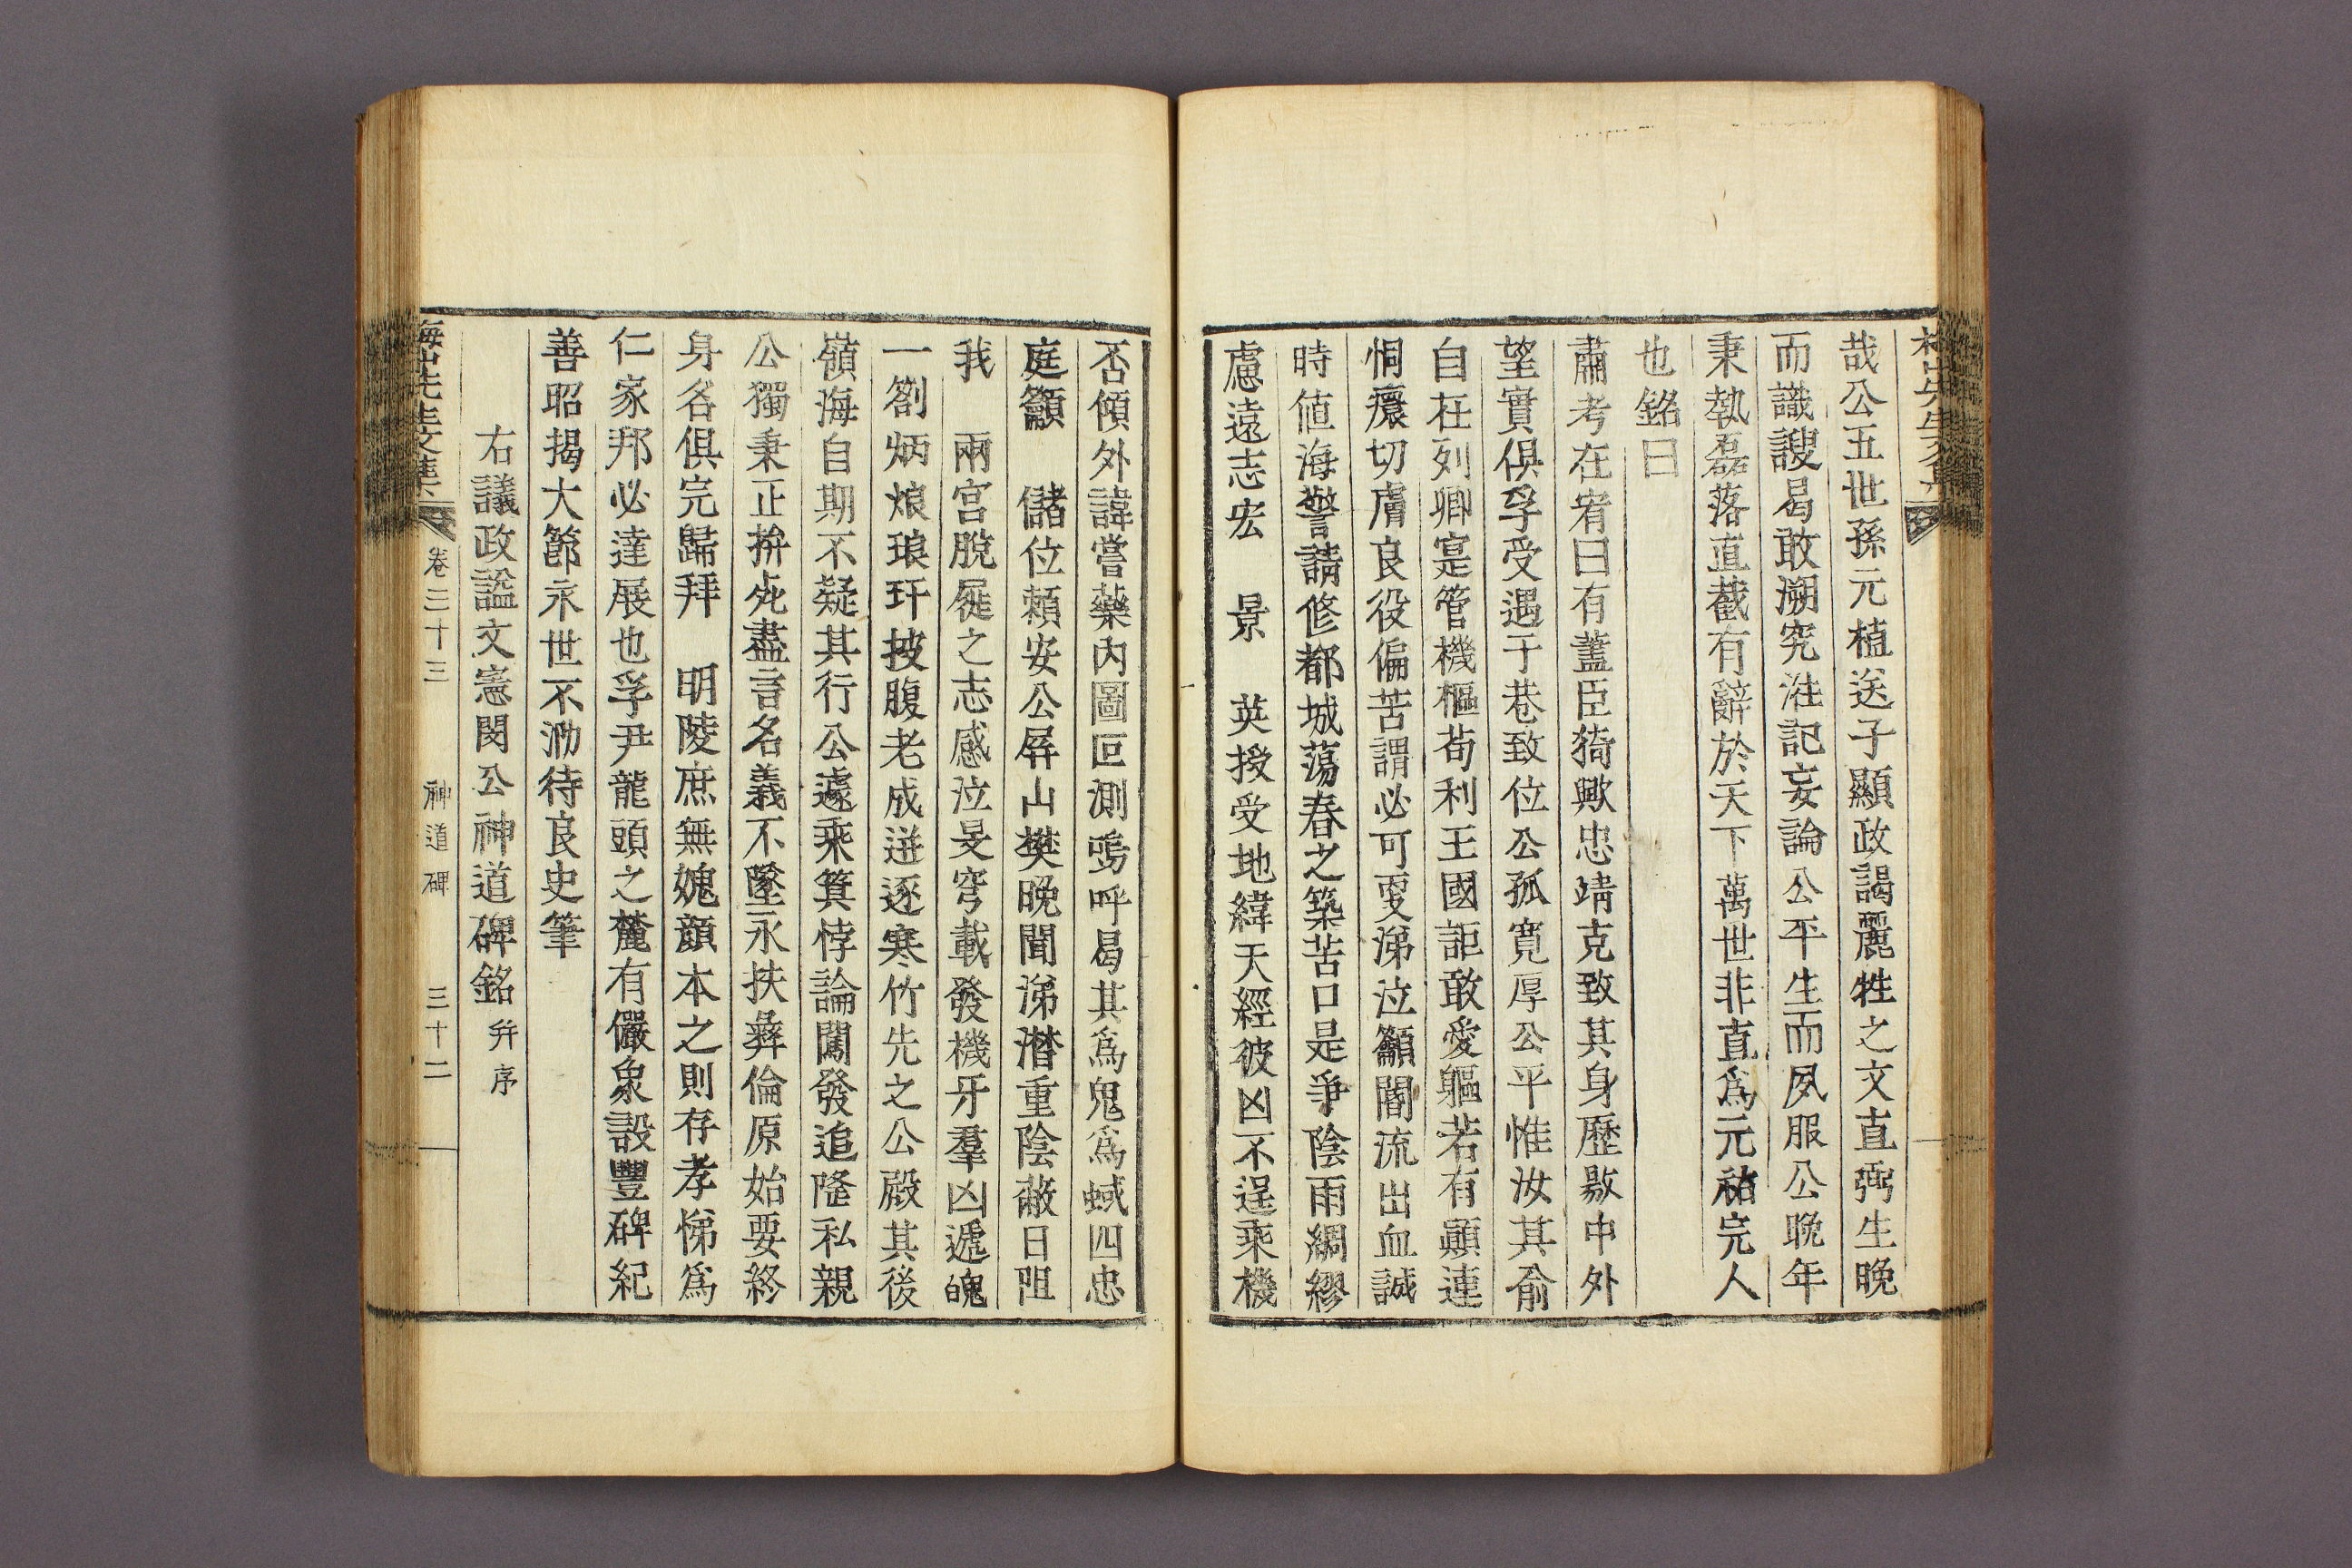 哉公五世孫元植送子顯政謁麗牲之文直弼生晚
而識謏曷敢溯究法記妄論公平生而夙服公晚年
秉執磊落直截有辭於天下萬世非直爲元祐完人
也銘曰
肅考在宥曰有藎臣猗歟忠靖克致其身歷敭中外
望實俱孚受遇于巷致位公孤寬厚公平惟汝其俞
自在列卿寔管機樞苟利王國詎敢愛軀若有顚連
恫癏切膚良役偏苦謂必可更涕泣籲閽流出血誠
時値海警請修都城蕩春之築苦口是爭陰雨綢繆
慮遠志宏 景 英授受地緯天經彼凶不逞乘機
否傾外諱嘗藥內圖叵測嗚呼曷其爲鬼爲蜮四忠
庭籲 儲位頼安公屛山樊晩聞涕潸重陰蔽日阻
我 兩宮脫屣之志感泣旻穹載發機牙羣凶遞魄
一劄炳烺琅玕披腹老成迸逐寒竹先之公殿其後
嶺海自期不疑其行公遽乘箕悖論闖發追隆私親
公獨秉正拚死盡言名義不墜永扶彝倫原始要終
身名俱完歸拜 明陵庶無媿顔本之則存孝悌爲
仁家邦必達展也孚尹龍頭之麓有儼象設豐碑紀
善昭揭大節永世不泐待良史筆
右議政謚文憲閔公神道碑銘 幷序
梅山先生文集 卷三十三 神道碑 三十二